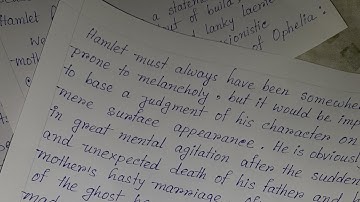 Hamlet
a statem
out of build
t lanky lacerte
ssionistic
of Ophelia:
We
moth
Hamlet must always have been somewhe
prone to melancholy, but it would be imp
to base a judgment of his character on
mere surface appearance. He is obviously
in great mental agitation after the sudden
and unexpected death of his father and
mother's hasty marriage
of the ghost
mad